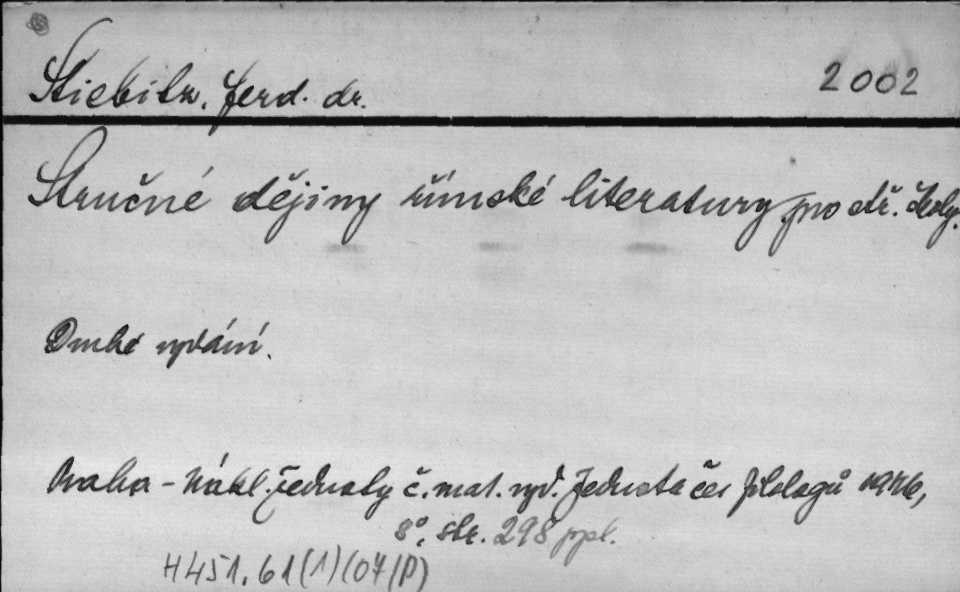 Stiebitz, Ferd. dr. 2002
Stručné dějiny římské literatury pro stř. školy.
Druhé vydání.
Praha - Nákl. Jednoty č. mat. vyd. Jednota čes filologů 1946,
8°, str. 298
H451.61(1)(07/P)